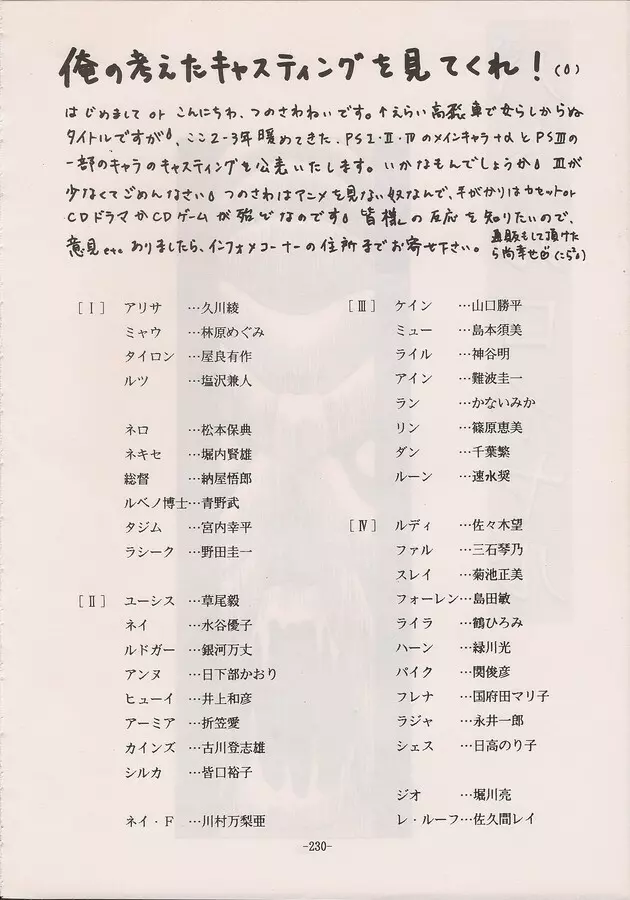 俺の考えたキャスティングを見てくれ!(0)
はじめまして or こんにちわ、つのさわねいです。↑えらい高飛車で女らしからぬ
タイトルですが、ここ2-3年暖めてきた、PSI・II・IVのメインキャラ+αとPSIIIの
一部のキャラのキャスティングを公表いたします。いかなもんでしょうか。IIIが
少なくてごめんなさい。つのさわはアニメを見ない奴なんで、手がかりはカセットor
CDドラマかCDゲームが殆どなのです。皆様の反応を知りたいので、
意見etcありましたら、インフォメコーナーの住所までお寄せ下さい。
通販もして頂けた
ら尚幸せ
[Ⅰ] アリサ …久川綾
ミャウ …林原めぐみ
タイロン …屋良有作
ルツ …塩沢兼人
ネロ …松本保典
ネキセ …堀内賢雄
総督 …納屋悟郎
ルベノ博士…青野武
タジム …宮内幸平
ラシーク …野田圭一
[Ⅱ] ユーシス …草尾毅
ネイ …水谷優子
ルドガー …銀河万丈
アンヌ …日下部かおり
ヒューイ …井上和彦
アーミア …折笠愛
カインズ …古川登志雄
シルカ …皆口裕子
ネイ・F …川村万梨亜
[Ⅲ] ケイン …山口勝平
ミュー …島本須美
ライル …神谷明
アイン …難波圭一
ラン …かないみか
リン …篠原恵美
ダン …千葉繁
ルーン …速水奨
[Ⅳ] ルディ …佐々木望
ファル …三石琴乃
スレイ …菊池正美
フォーレン…島田敏
ライラ …鶴ひろみ
ハーン …緑川光
パイク …関俊彦
フレナ …国府田マリ子
ラジャ …永井一郎
シェス …日高のり子
ジオ …堀川亮
レ・ルーフ…佐久間レイ
-230-